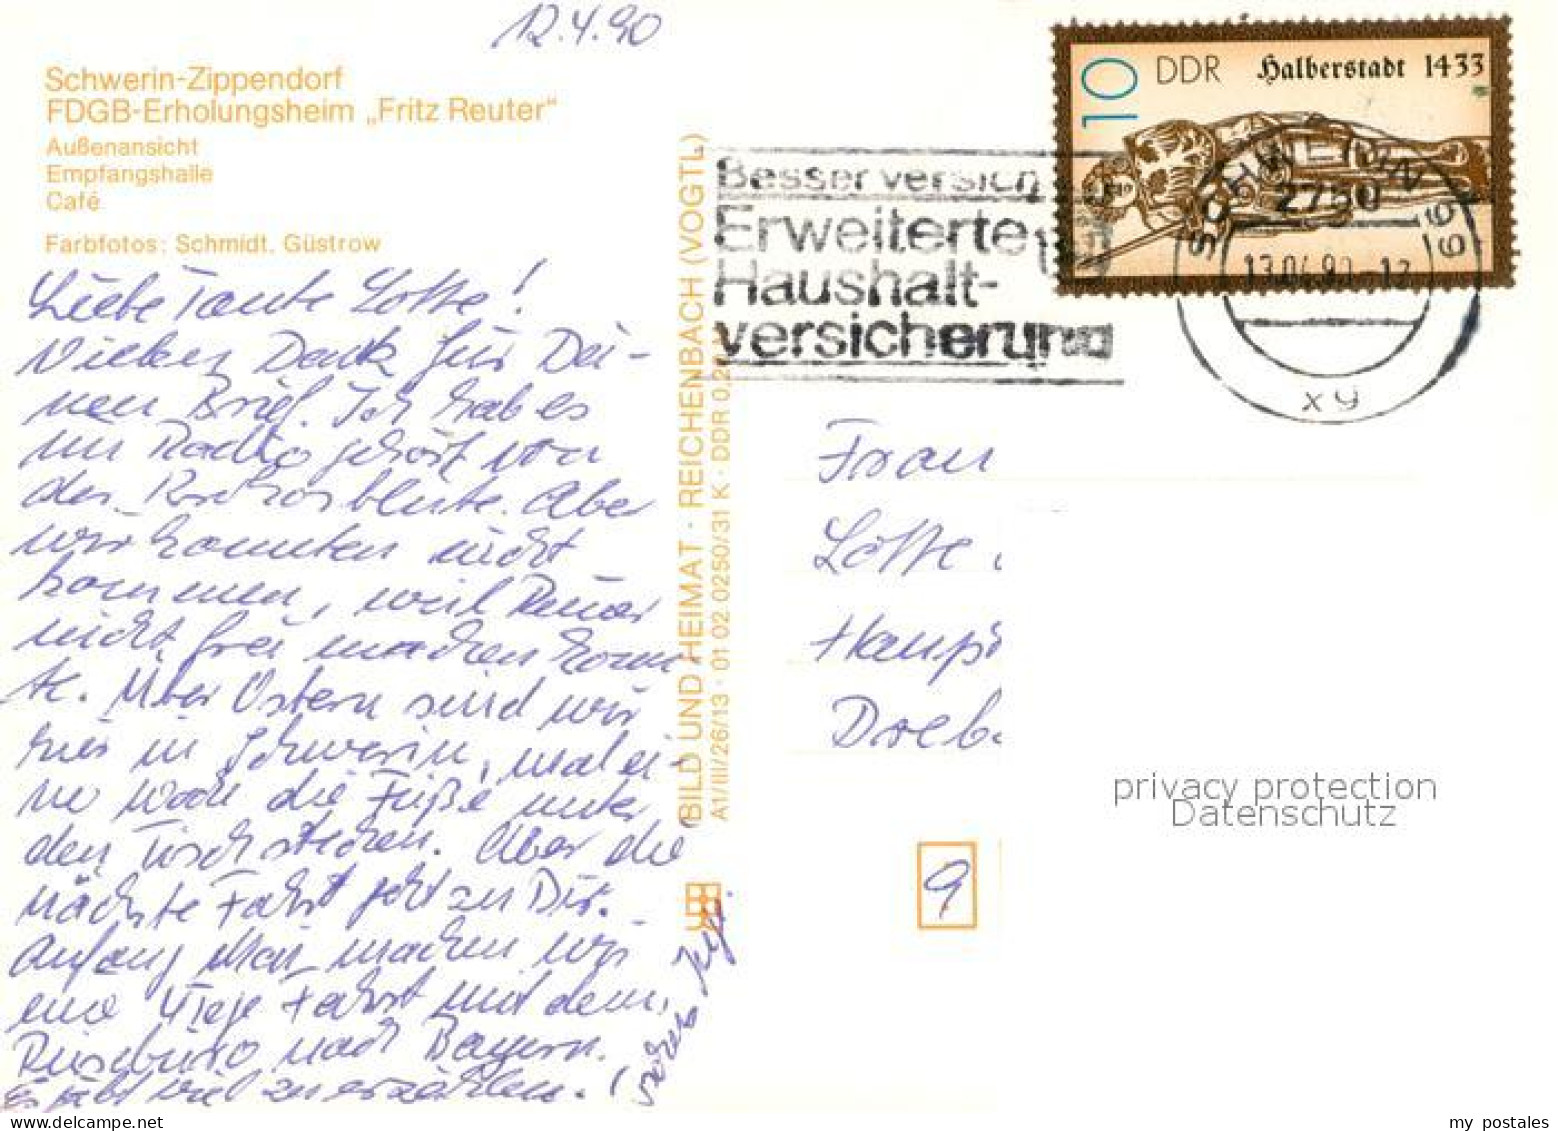 12.4.90
Schwerin-Zippendorf
FDGB-Erholungsheim „Fritz Reuter"
Außenansicht
Empfangshalle
Café
Farbfotos: Schmidt, Güstrow
Liebe Tante Lotte!
Vielen Dank für Dei-
nen Brief. Ich hab es
im Radio gehört von
der blüte. Aber
wir konnten nicht
kommen, weil Rainer
nicht frei machen konn
te. Über Ostern sind wir
hier in Schwerin, mal ei-
ne Woche die Füße unter
den Tisch stecken. Aber die
nächste Fahrt geht zu Dir.
Anfang Mai machen wir
eine 4 Tage Fahrt mit dem
Reisebüro nach Bayern.
Es gibt viel zu erzählen.
BILD UND HEIMAT · REICHENBACH (VOGTL)
A1/III/26/13 · 01 02 0250/31 K · DDR 0,2
10 DDR Halberstadt 1433
Besser versich
Erweiterte
Haushalt-
versicherung
SCHWERIN 99
2750
13.04.90-12
xy
Frau
Lotte
Haupt
Dreb
9
privacy protection
Datenschutz
my postales